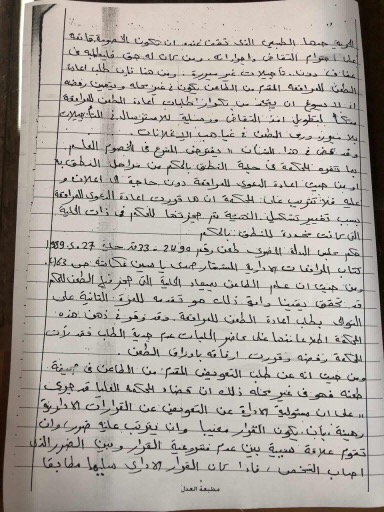 لحرية حقها الطبيعي الذى تقتضى عنه ان تكون الخصومة قائمة
على احترام التقاضى واجراءاته ومن كان له حق فليطلبه فى
دون تأجيلات غير مبررة ومن هنا فإن طلب اعادة
الطعن للمرافعة المقدم من الطاعن يكون فى غير محله ويتعين رفضه
اذ لا يسوغ ان يتخذ من تكرار طلبات اعادة الطعن للمرافعة
لتطويل امد التقاضى ووسيلة للاسترسال فى التأجيلات
بلا مبرر ورمى الطعن فى غياهب
وقد قضى فى هذا الشأن يفترض المشرع فى الخصوم العلم
بما تقرره المحكمة فى جلسة النطق بالحكم من مراحل النطق به
او من حيث اعادة الدعوى للمرافعة دون حاجة الى اعلان و
عليه فلا تثريب على المحكمة ان هى قررت اعادة الدعوى للمرافعة
بسبب تغيير تشكيل الهيئة ثم حجزتها للحكم فى ذات الجلسة
التى كانت محددة للنطق بالحكم
حكم مجلس الدولة المصرى طعن رقم 2490 - 33ق جلسة 27 مايو 1989
كتاب المرافعات الادارية المستشار حمدى ياسين عكاشه ص 163
ومن حيث ان علم الطاعن بميعاد الجلسة التى حجز فيها الطعن للحكم
قد تحقق يقينا وآية ذلك هو تقدمه للمرة الثانية على
التوالى بطلب اعادة الطعن للمرافعة وقد وقر فى ذهن هذه
المحكمة اطلاعا منها على عناصر الطلبات عدم جدية الطلب فقد رأت
المحكمة رفضه وقررت ارفاقه باوراق الطعن
ومن حيث انه عن طلب التعويض المقدم من الطاعن فى صحيفة
طعنه فهو فى غير محله ذلك ان قضاء المحكمة العليا قد جرى
" على ان مسئولية الادارة عن التعويض عن القرارات الادارية
رهينة بأن يكون القرار معيبا وان يترتب عليه ضرر وان
تقوم علاقة سببية بين عدم مشروعية القرار وبين الضرر الذى
اصاب الشخص ، فاذا كان القرار الادارى سليما مطابقا
مطبعة العدل